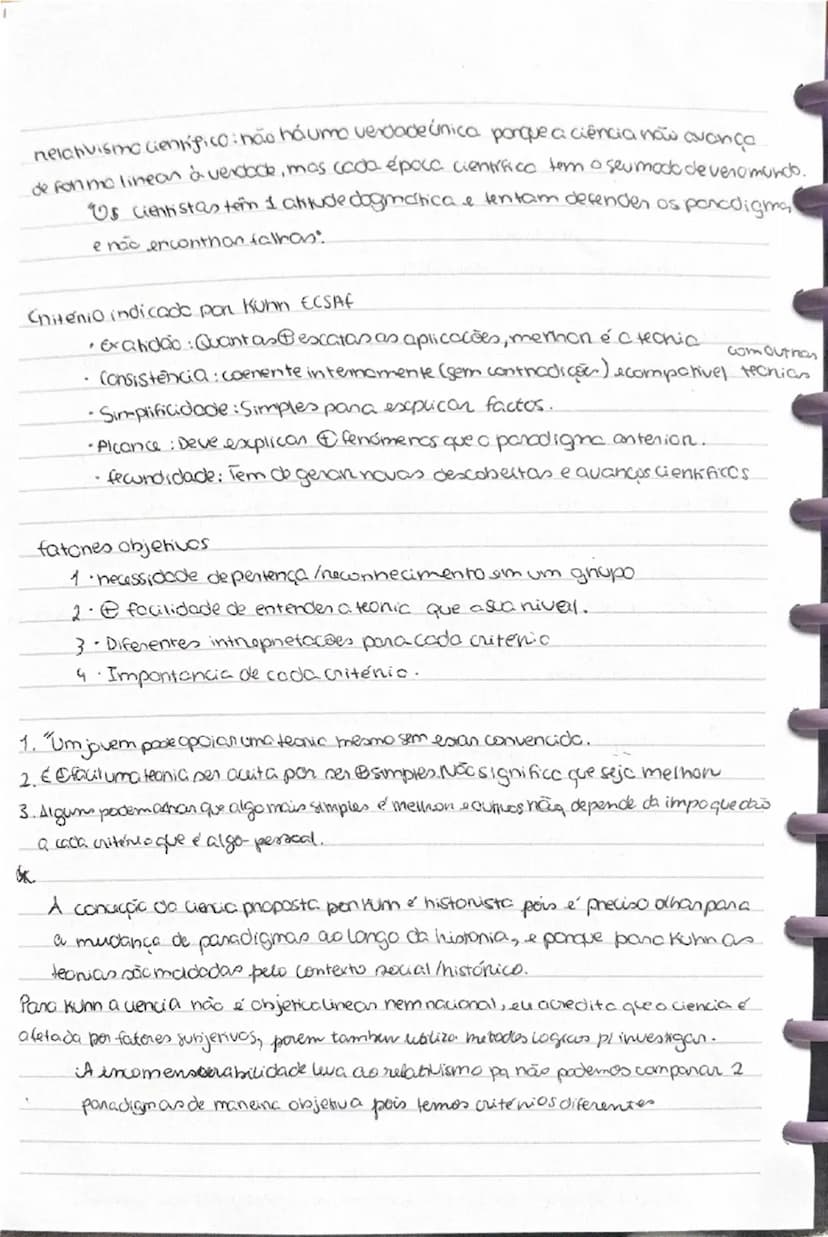 relativismo científico: não há uma verdade única porque a ciência não avança
de forma linear à verdade, mas cada época científica tem o seu modo de ver o mundo.
Os cientistas têm 1 atitude dogmática e tentam defender os paradigma,
e não encontrar falhas".
Critério indicado por Kuhn ECSAF
· Exatidão: Quantas ⊕ exatas as aplicações, melhor é a teoria
· Consistência: coerente internamente (sem contradições) e compatível com outras teorias
· Simplificidade: Simples para explicar factos.
· Alcance: Deve explicar ⊕ fenómenos que o paradigma anterior.
· fecundidade: Tem de gerar novas descobertas e avanços científicos
fatores objetivos
1 · necessidade de pertença/reconhecimento em um grupo
2 · ⊕ facilidade de entender a teoria que a sua rival.
3 · Diferentes intrepretações para cada critério
4 · Importancia de cada critério.
1. "Um jovem pode apoiar uma teoria mesmo sem estar convencido.
2. É ⊕ fácil uma teoria ser aceita por ser ⊕ simples. Não significa que seja melhor
3. Alguns podem achar que algo mais simples é melhor e outros não, depende da impo que dão
a cada critério que é algo pessoal.
A conceção da ciencia proposta por Kuhn é historista pois é preciso olhar para
a mudança de paradigmas ao longo da historia, e porque para Kuhn as
teorias são moldadas pelo contexto social/histórico.
Para Kuhn a ciencia não é objetica linear nem racional, eu acredito que a ciencia é
afetada por fatores subjetivos, porem tambem utiliza metodos logicos p/ investigar.
A incomensurabilidade leva ao relativismo pq não podemos comparar 2
paradigmas de maneira objetiva pois temos critérios diferentes